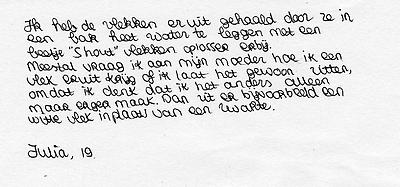 Ik heb de vlekken eruit gehaald door ze in
een bak heet water te leggen met een
beetje "Shout" vlekken oplosser erbij.
Meestal vraag ik aan mijn moeder hoe ik een
vlek eruit krijg of ik laat het gewoon zitten,
omdat ik denk dat ik het anders alleen
maar erger maak. Dan zit er bijvoorbeeld een
witte vlek in plaats van een zwarte.
Julia, 19